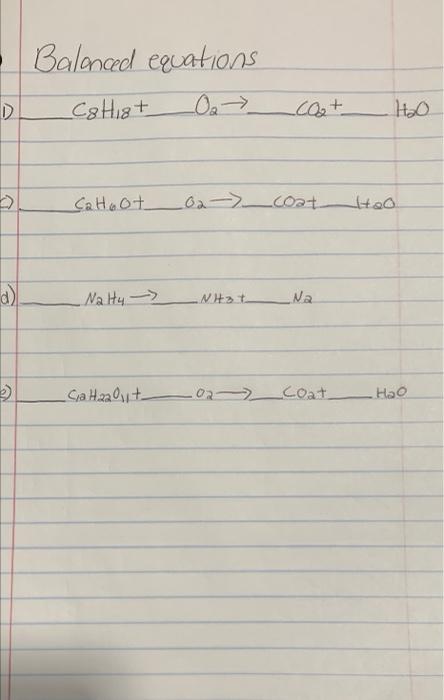 Balanced equations
D) ___ C8H18 + ___ O2 → ___ CO2 + ___ H2O
c) ___ C2H6O + ___ O2 → ___ CO2 + ___ H2O
d) ___ N2H4 → ___ NH3 + ___ N2
e) ___ C12H22O11 + ___ O2 → ___ CO2 + ___ H2O